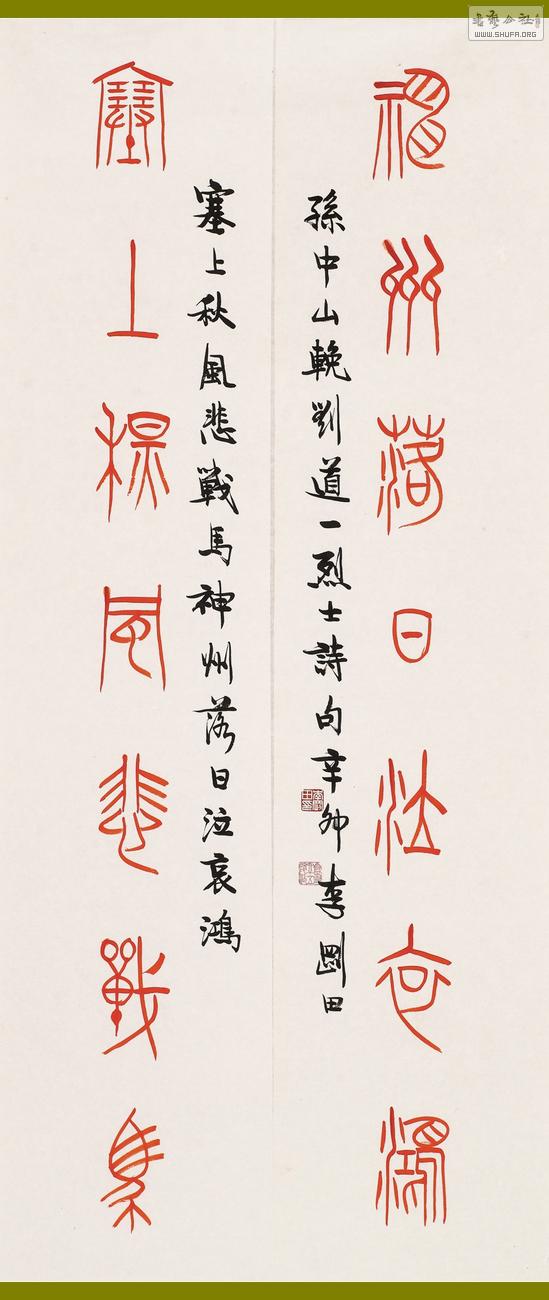 神州落日泣哀鴻
孫中山輓劉道一烈士詩句辛卯李剛田
塞上秋風悲戰馬神州落日泣哀鴻
塞上秋風悲戰馬
書藝公社
WWW.SHUFA.ORG